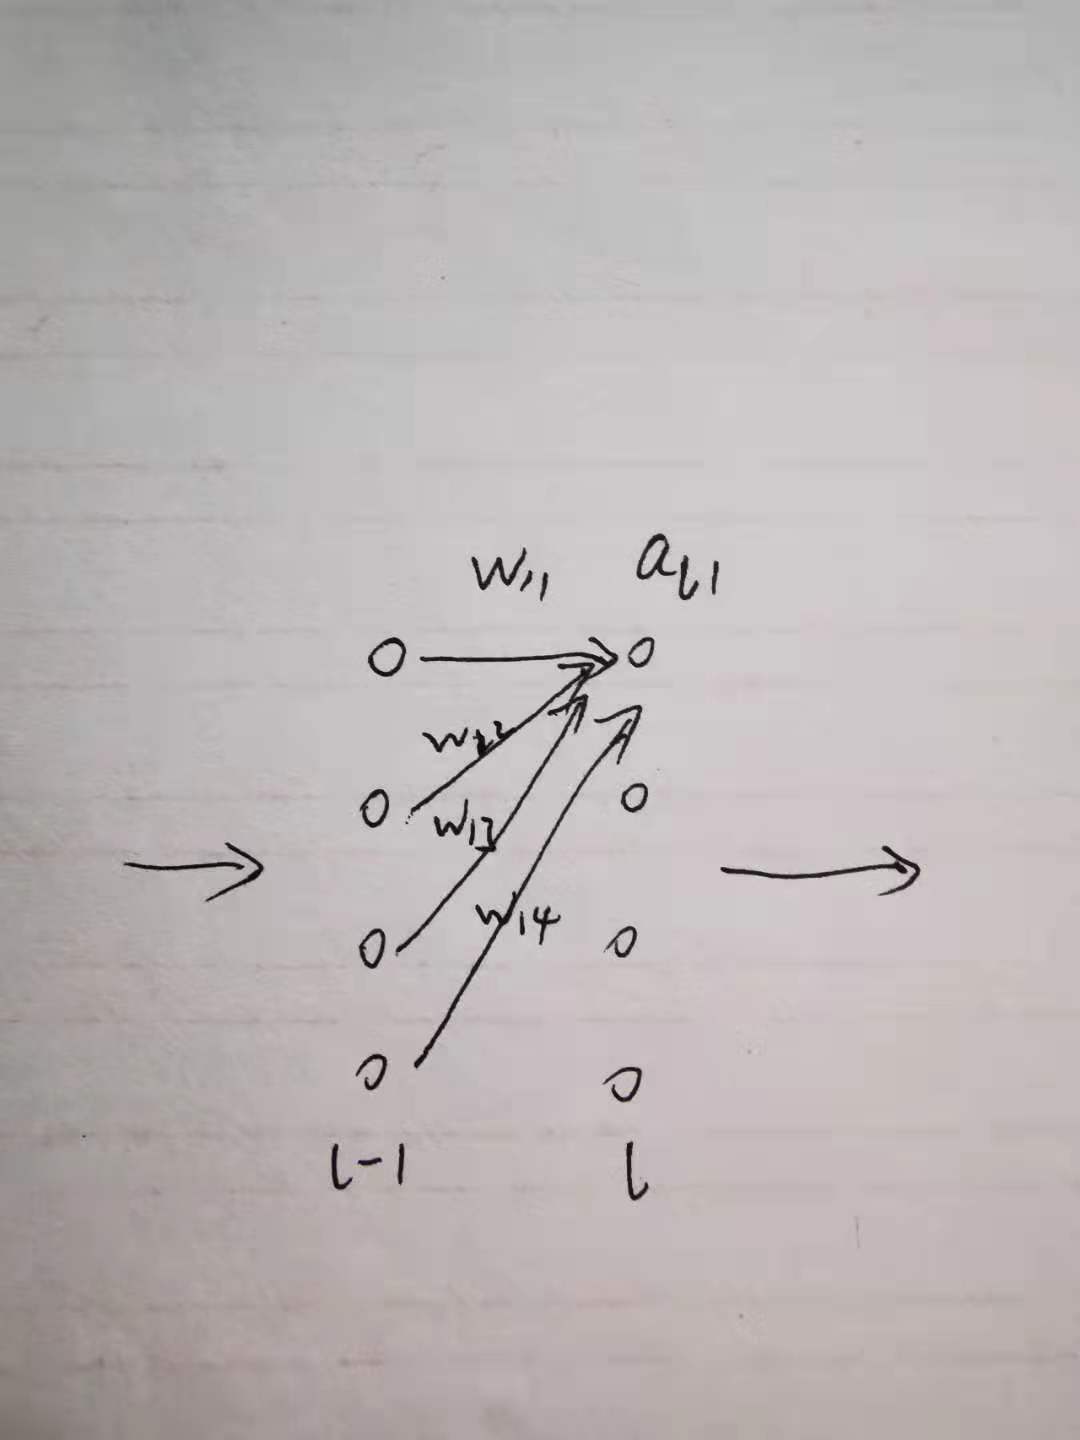 W11 al1
W13
W14
l-1 l